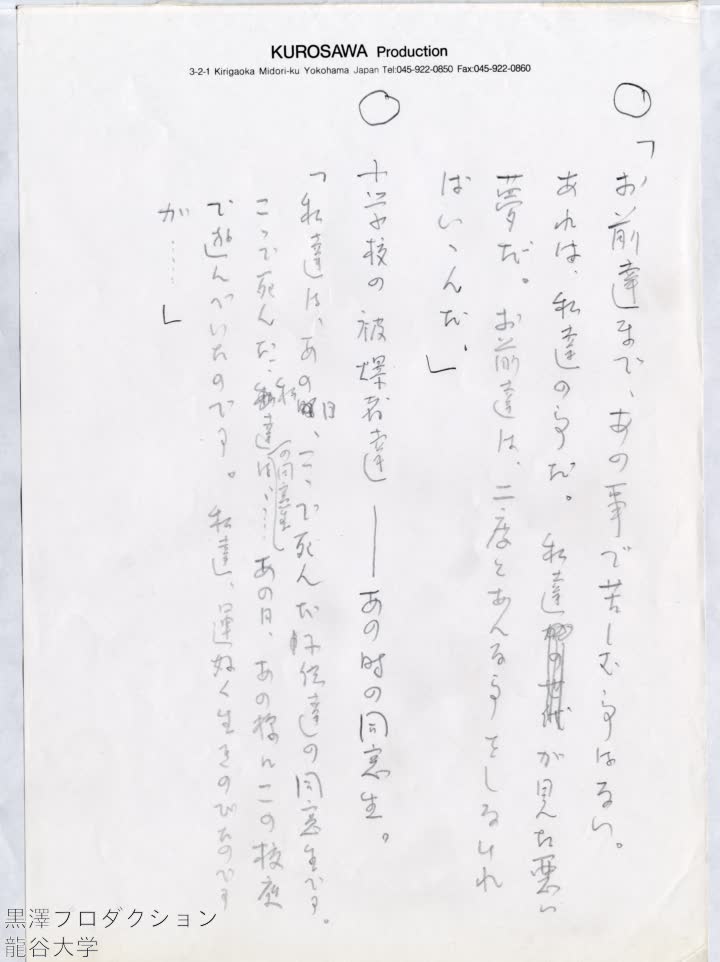 KUROSAWA Production
3-2-1 Kirigaoka Midori-ku Yokohama Japan Tel:045-922-0850 Fax:045-922-0860
○
「お前達まで、あの事で苦しむ事はない。
あれは、私達の事だ。私達が見た悪い
夢だ。お前達は、二度とあんな事をしなけれ
ばいゝんだ。」
○
小学校の被爆者達――あの時の同窓生。
「私達は、あの日、こゝで死んだ子供達の同窓生です。
こゝで死んだ、私達の同窓生は……あの日、あの様にこの校庭
で遊んでいたのです。私達、運好く生きのびたのです
が……」
黒澤プロダクション
龍谷大学